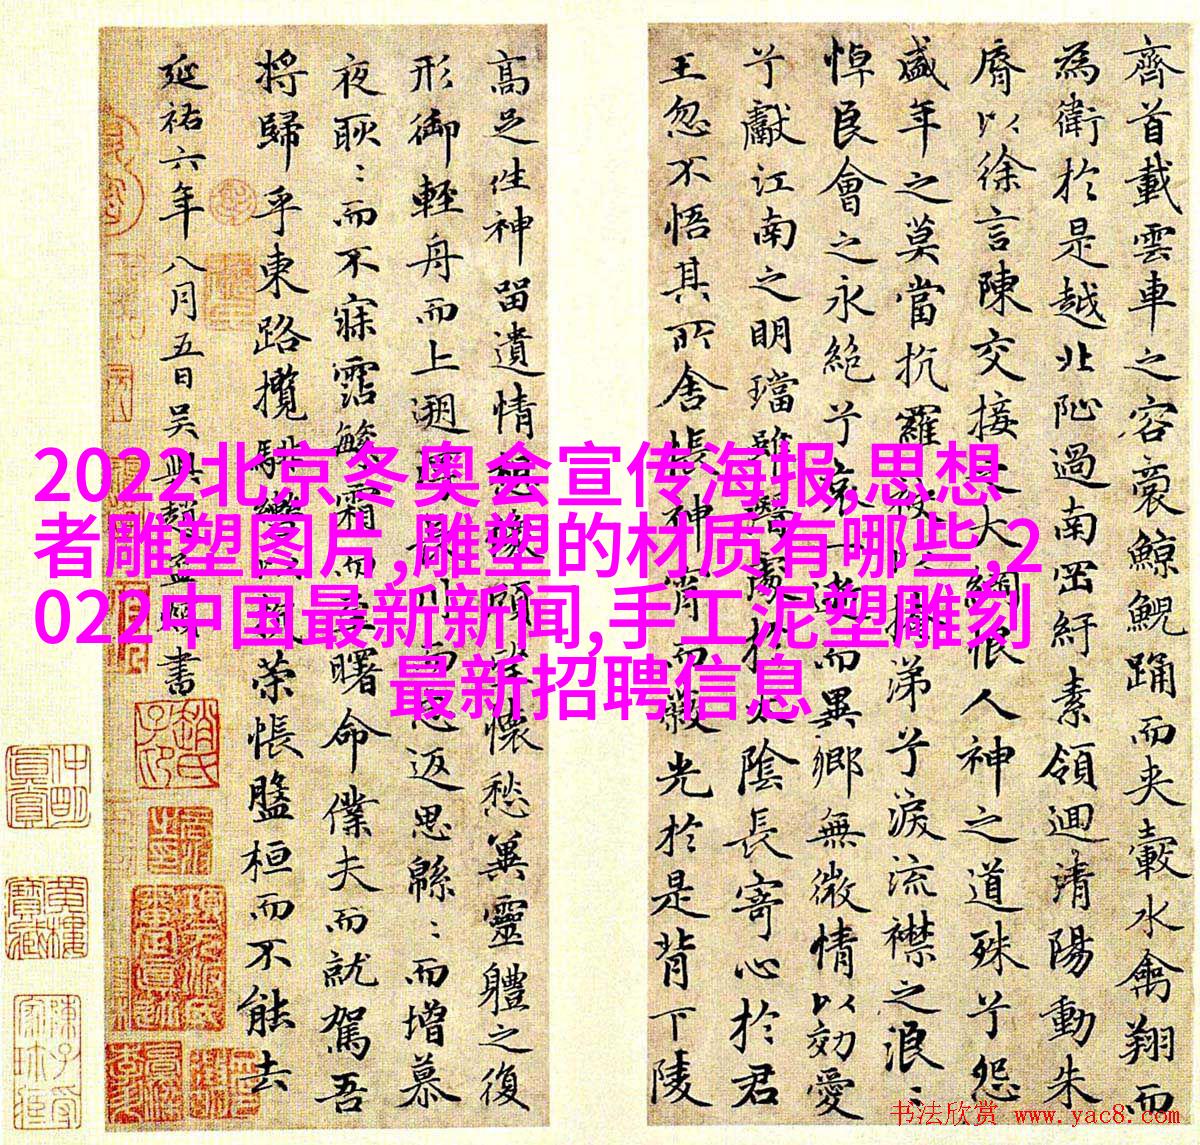 齊首載雲車之容裔鯨鯢踊而夾轂水禽翔而
為衛於是越北沚過南岡紆素領迴清陽動朱
脣以徐言陳交接之大綱恨人神之道殊兮怨
盛年之莫當抗羅袂以掩涕兮淚流襟之浪〻
悼良會之永絕兮哀一逝而異鄉無微情以効愛
兮獻江南之明璫雖潛處於太陰長寄心於君
王忽不悟其所舍悵神宵而蔽光於是背下陵
高足往神留遺情想像顧望懷愁冀靈體之復
形御輕舟而上遡浮長川而忘返思緜〻而增慕
夜耿〻而不寐霑繁霜而至曙命僕夫而就駕吾
將歸乎東路攬騑轡以抗策悵盤桓而不能去
延祐六年八月五日吳興趙孟頫書
2022北京冬奥会宣传海报,思想
者雕塑图片,雕塑的材质有哪些,2
022中国最新新闻,手工泥塑雕刻
最新招聘信息
书法欣赏 www.yac8.com